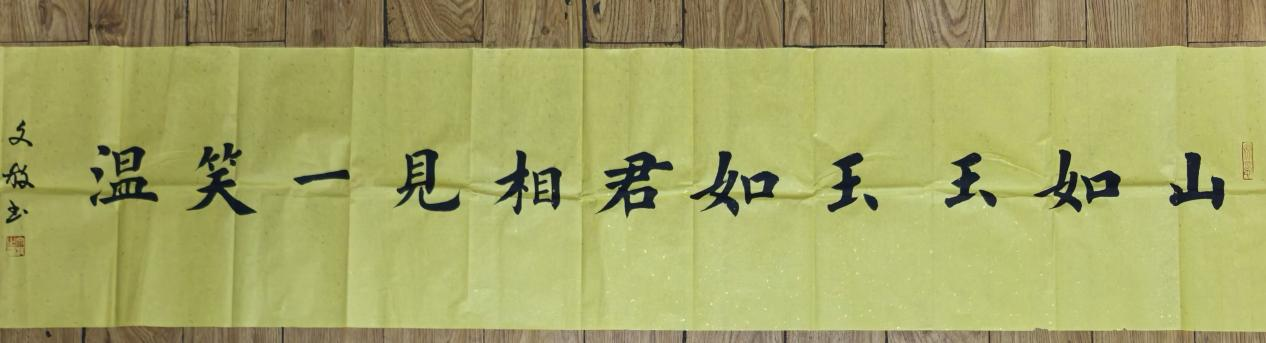 山如玉玉如君相見一笑温
文敏书